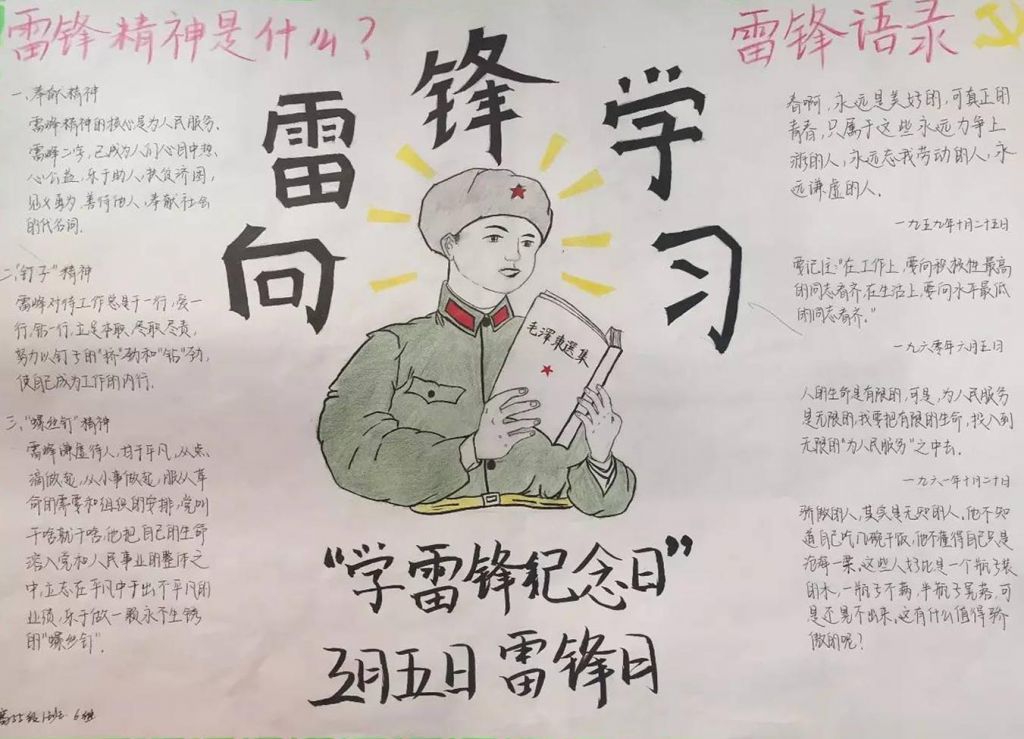 雷锋精神是什么？
一、奉献精神
雷锋精神的核心是为人民服务。
雷锋二字，已成为人们心目中热
心公益，乐于助人，扶贫济困，
见义勇为，善待他人，奉献社会
的代名词。
二、“钉子”精神
雷锋对待工作总是干一行，爱一
行，钻一行，立足本职，尽职尽责，
努力以钉子的“挤”劲和“钻”劲，
使自己成为工作的内行。
三、“螺丝钉”精神
雷锋谦虚待人，甘于平凡，从点
滴做起，从小事做起，服从革
命的需要和组织的安排，党叫
干啥就干啥，他把自己的生命
溶入党和人民事业的整体之
中，立志在平凡中干出不平凡的
业绩，乐于做一颗永不生锈
的“螺丝钉”。
向雷锋学习
毛澤東選集
“学雷锋纪念日”
3月五日 雷锋日
雷锋语录
春啊，永远是美好的，可真正的
青春，只属于这些永远力争上
游的人，永远忘我劳动的人，永
远谦虚的人。
一九五九年十月二十五日
要记住：“在工作上，要向积极性最高
的同志看齐，在生活上，要向水平最低
的同志看齐。”
一九六零年六月五日
人的生命是有限的，可是，为人民服务
是无限的，我要把有限的生命，投入到
无限的“为人民服务”之中去。
一九六一年十月二十日
骄傲的人，其实是无知的人。他不知
道自己吃几碗干饭，他不懂得自己只是
沧海一粟。这些人好比是一个瓶子装
的水，一瓶子不满，半瓶子晃荡，可
是还晃不出来，这有什么值得骄
傲的呢？